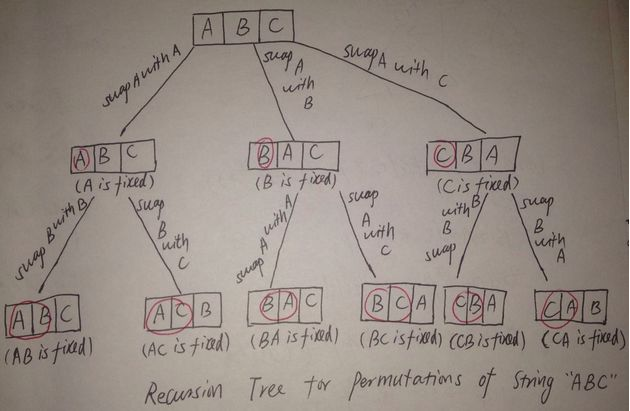 A B C
swap A with A
swap A with B
swap A with C
A B C
B A C
C B A
(A is fixed)
(B is fixed)
(C is fixed)
swap B with B
swap B with C
swap A with A
swap A with C
swap B with B
swap B with A
A B C
A C B
B A C
B C A
C B A
C A B
(AB is fixed)
(AC is fixed)
(BA is fixed)
(BC is fixed)
(CB is fixed)
(CA is fixed)
Recursion Tree for Permutations of String "ABC"